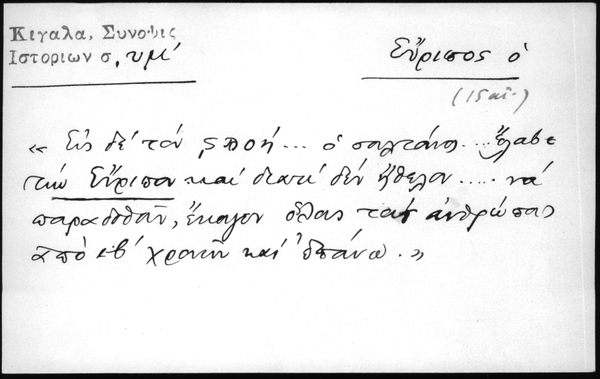 Κιγαλα, Συνοψις
Ιστοριων σ, υμ΄
Εὔριπος ὁ
(15 αἰ.)
« Εἰς δέ τόν ͵ϛ ... ὁ σουλτάνος .... ἔλαβε
τήν Εὔριπον καί διατί δέν ἤθελον .... νά
παραδοθοῦν, ἔκαψαν ὅλους τούς ἀνθρώπους
ἀπό ιβ΄ χρονῶν καί ἐπάνω. »